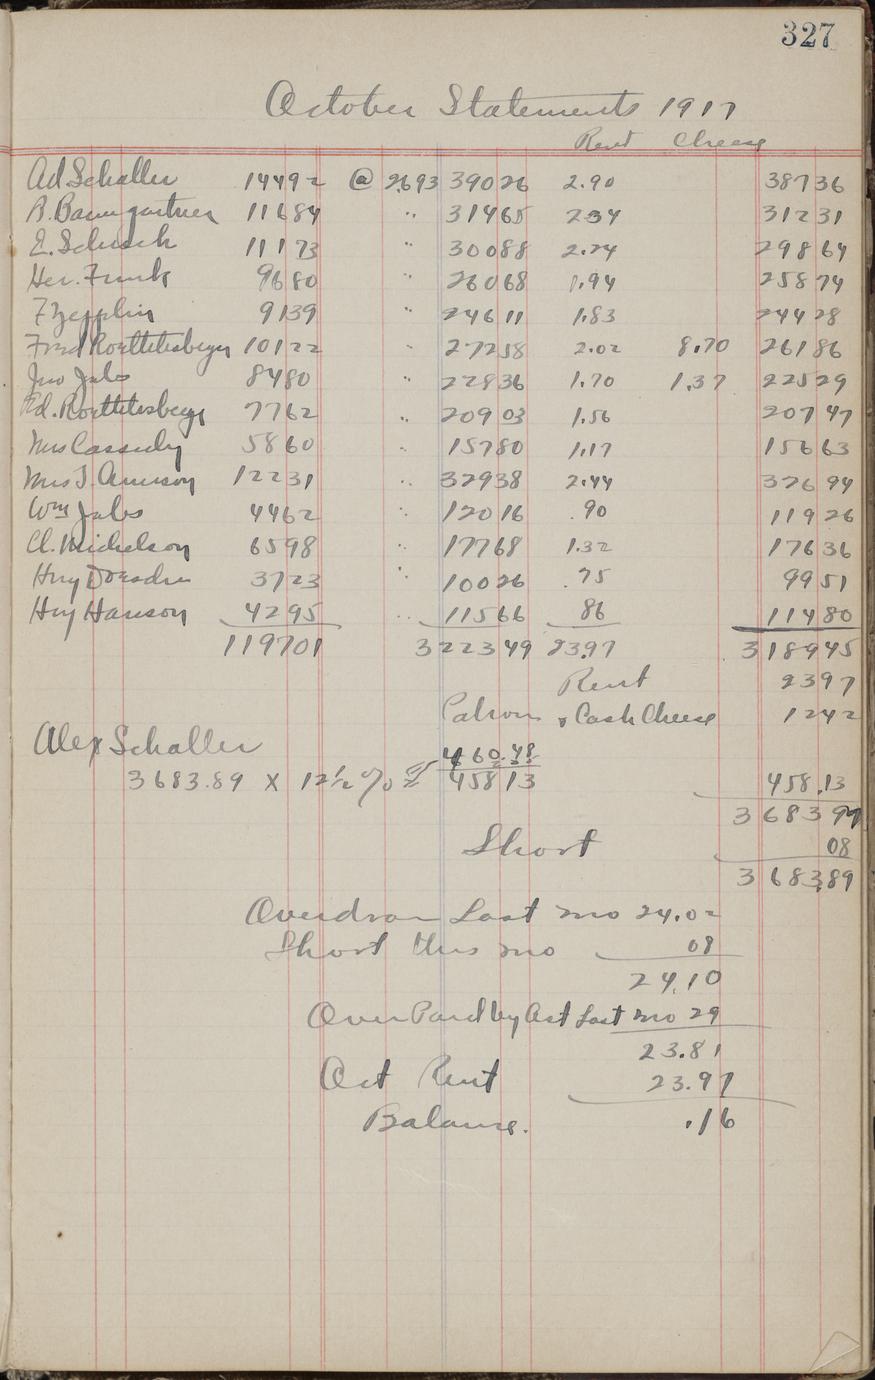 327
October Statements 1917
Rent Cheese
Ad Schaller 14492 @ 2693 39026 2.90 38736
B. Baumgartner 11684 " 31465 234 31231
E. Schusch 11173 " 30088 2.24 29864
Her. Funk 9680 " 26068 1.94 25874
F Zepplin 9139 " 24611 1.83 24428
Fred Roethlisberger 10122 " 27258 2.02 8.70 26186
Jno Jules 8480 " 22836 1.70 1.37 22529
Ed. Roethlisberger 7762 " 20903 1.56 20747
Mrs Cassidy 5860 " 15780 1.17 15663
Mrs J. Amerson 12231 " 32938 2.44 32694
Wm Jules 4462 12016 .90 11926
Cl. Nicholson 6598 " 17768 1.32 17636
Hry Dresden 3723 " 10026 .75 9951
Hry Hanson 4295 " 11566 86 11480
119701 322349 23.97 318945
Rent 2397
Patrons Cash Cheese 1242
Alex Schaller 460.48
3683.89 X 12½ % 458 13 458.13
368397
Short 08
3683.89
Overdran Last mo 24.02
Short this mo 08
24.10
Over Paid by Ast Last mo 29
23.81
Oct Rent 23.97
Balance. .16